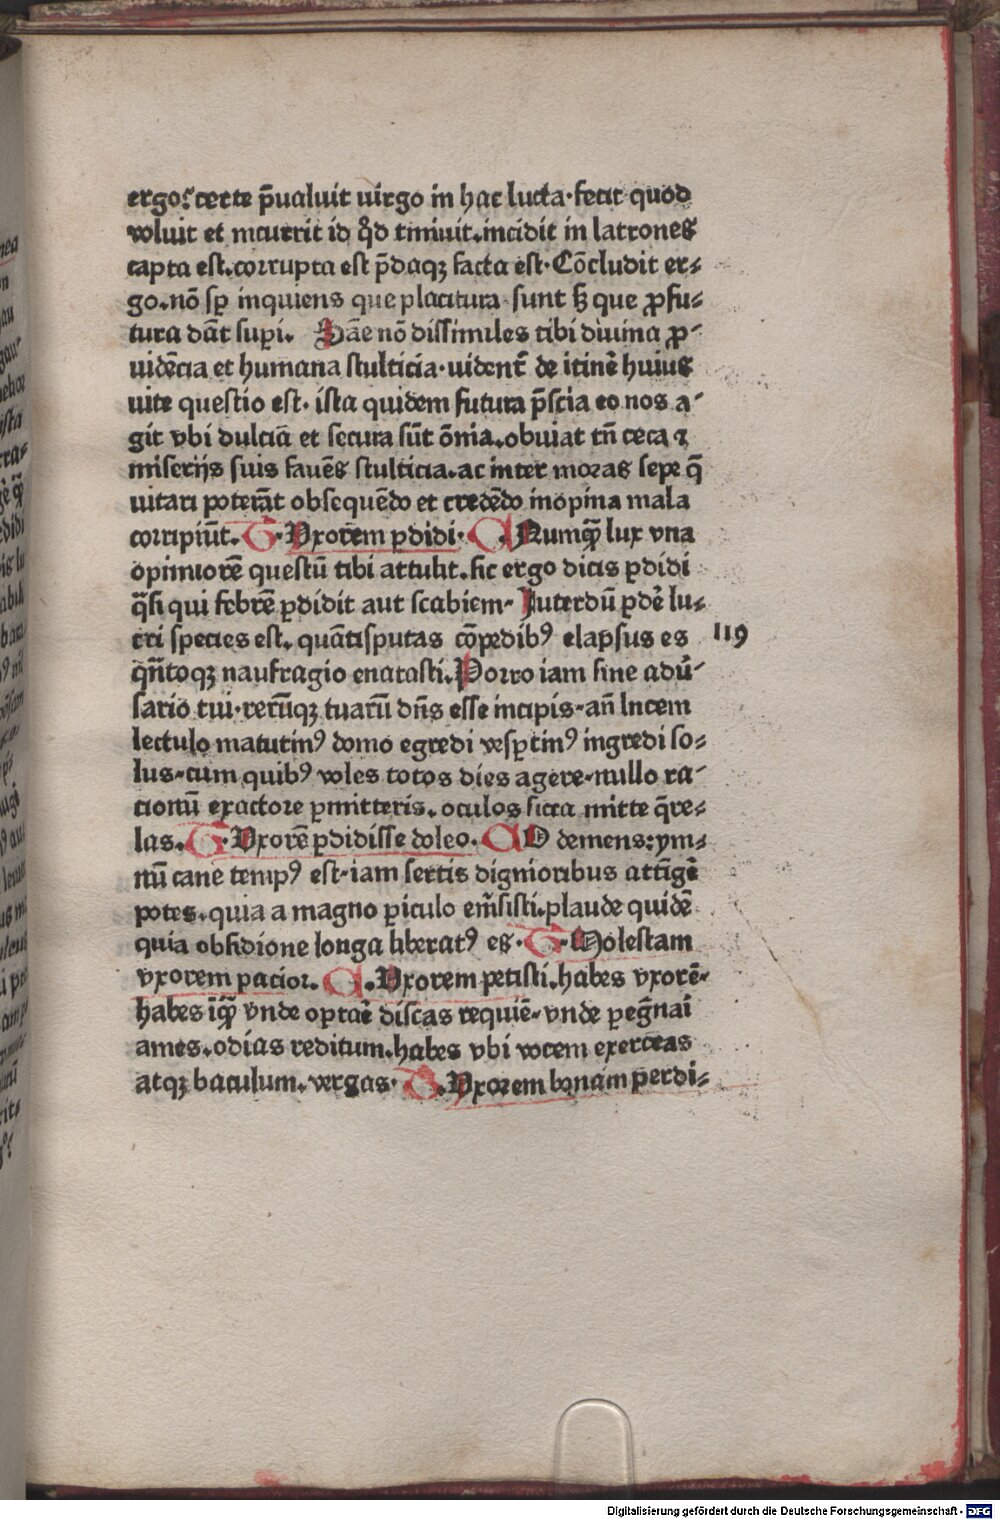 ergo? certe p̄ualuit uirgo in hac lucta·fecit quod
woluit et incurrit id q̊d timuit.incidit in latrones
capta est.corrupta est p̄daqꝫ facta est·Cōcludit er⸗
go.nō sꝑ inquiens que placitura sunt sꝫ que ꝓfu⸗
tura dāt suꝑi. Sāe nō dissimiles tibi diuina ꝓ⸗
uidēcia et humana stulticia·uident̄ de itinē huius
uite questio est. ista quidem futura p̄scia eo nos a⸗
git vbi dulciā et secura sūt ōnia.obuiat tn̄ ceca ⁊
miserijs suis fauēs stulticia.ac inter moras sepe q̄
uitari poterāt obsequēdo et credēdo inopina mala
corripiūt. G· Vxorem ꝑdidi· A Numꝙ̄ lux vna
opimiorē questū tibi attulit.sic ergo dicis ꝑdidi
q̄si qui febrē ꝑdidit aut scabiem· Interdū ꝑdē lu⸗
cri species est. quātisputas cōpedibꝰ elapsus es
119
qn̄toqꝫ naufragio enatasti.Porro iam sine adū⸗
sario tui·rerūqꝫ tuarū dn̄s esse incipis·an̄ lucem
lectulo matutinꝰ domo egredi vesꝑtinꝰ ingredi so⸗
lus·cum quibꝰ voles totos dies agere·nullo ra⸗
cionū exactore ꝑmitteris. oculos sicca mitte q̄re⸗
las. G· Vxorē ꝑdidisse doleo. A O demens:ym⸗
nū cane tempꝰ est·iam sertis dignioribus attīgē
potes.quia a magno ꝑiculo em̄sisti.plaude quidē
quia obsidione longa liberatꝰ es· G·Molestam
vxorem pacior. A.Vxorem petisti.habes vxorē·
habes īꝙ̄ vnde optaē discas requiē·vnde ꝑegn̄ai
ames.odias reditum.habes vbi vocem exerceas
atqꝫ baculum.vergas· G.Vxorem bonam perdi⸗
Digitalisierung gefördert durch die Deutsche Forschungsgemeinschaft - DFG